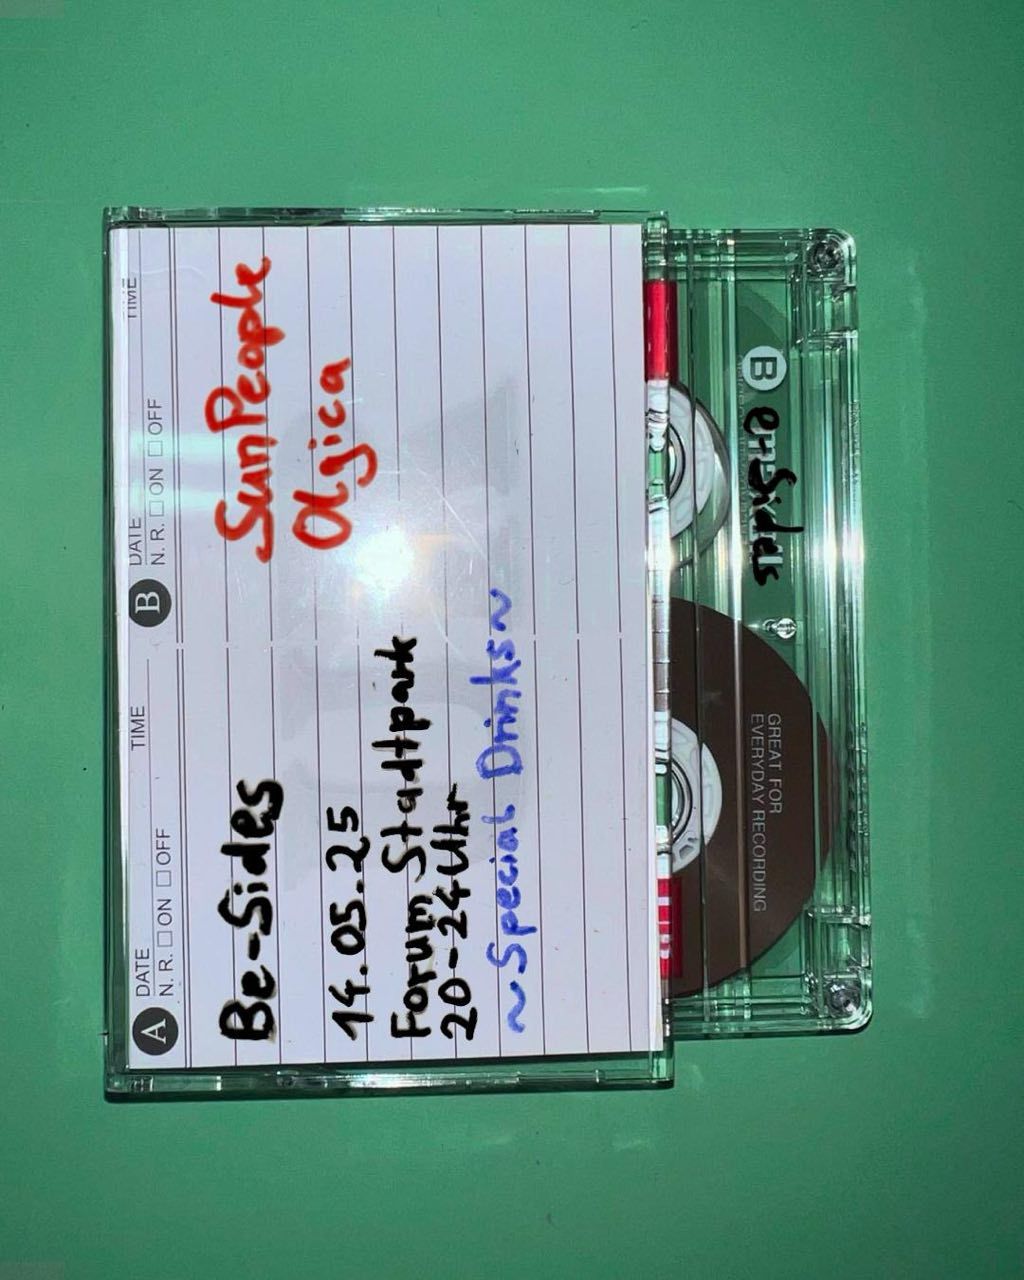 A DATE TIME
N. R. □ ON □ OFF
B DATE TIME
N. R. □ ON □ OFF
Be-Sides
SunPeople
Oljica
14.05.25
Forum Stadtpark
20-24 Uhr
~Special Drinks~
B
e-Sides
GREAT FOR
EVERYDAY RECORDING